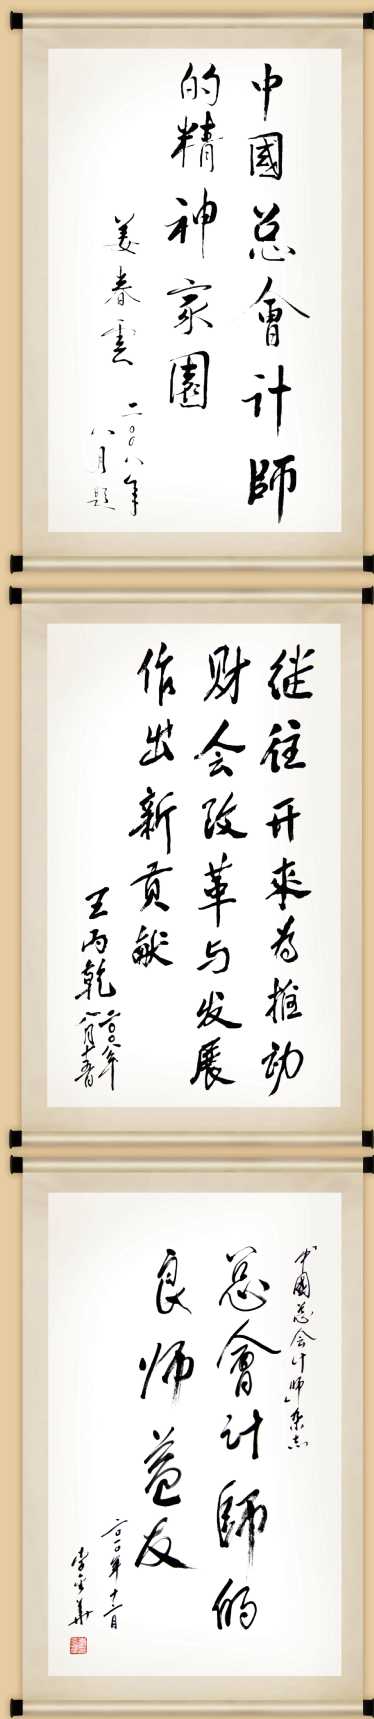 中國总會计師
的精神家園
姜春雲
二〇〇八年
八月題
继往开来为推动
财会改革与发展
作出新贡献
王丙乾
二〇〇八年
八月十五日
中國总会计师杂志
总會计師的
良师益友
二〇一〇年十二月
李金華